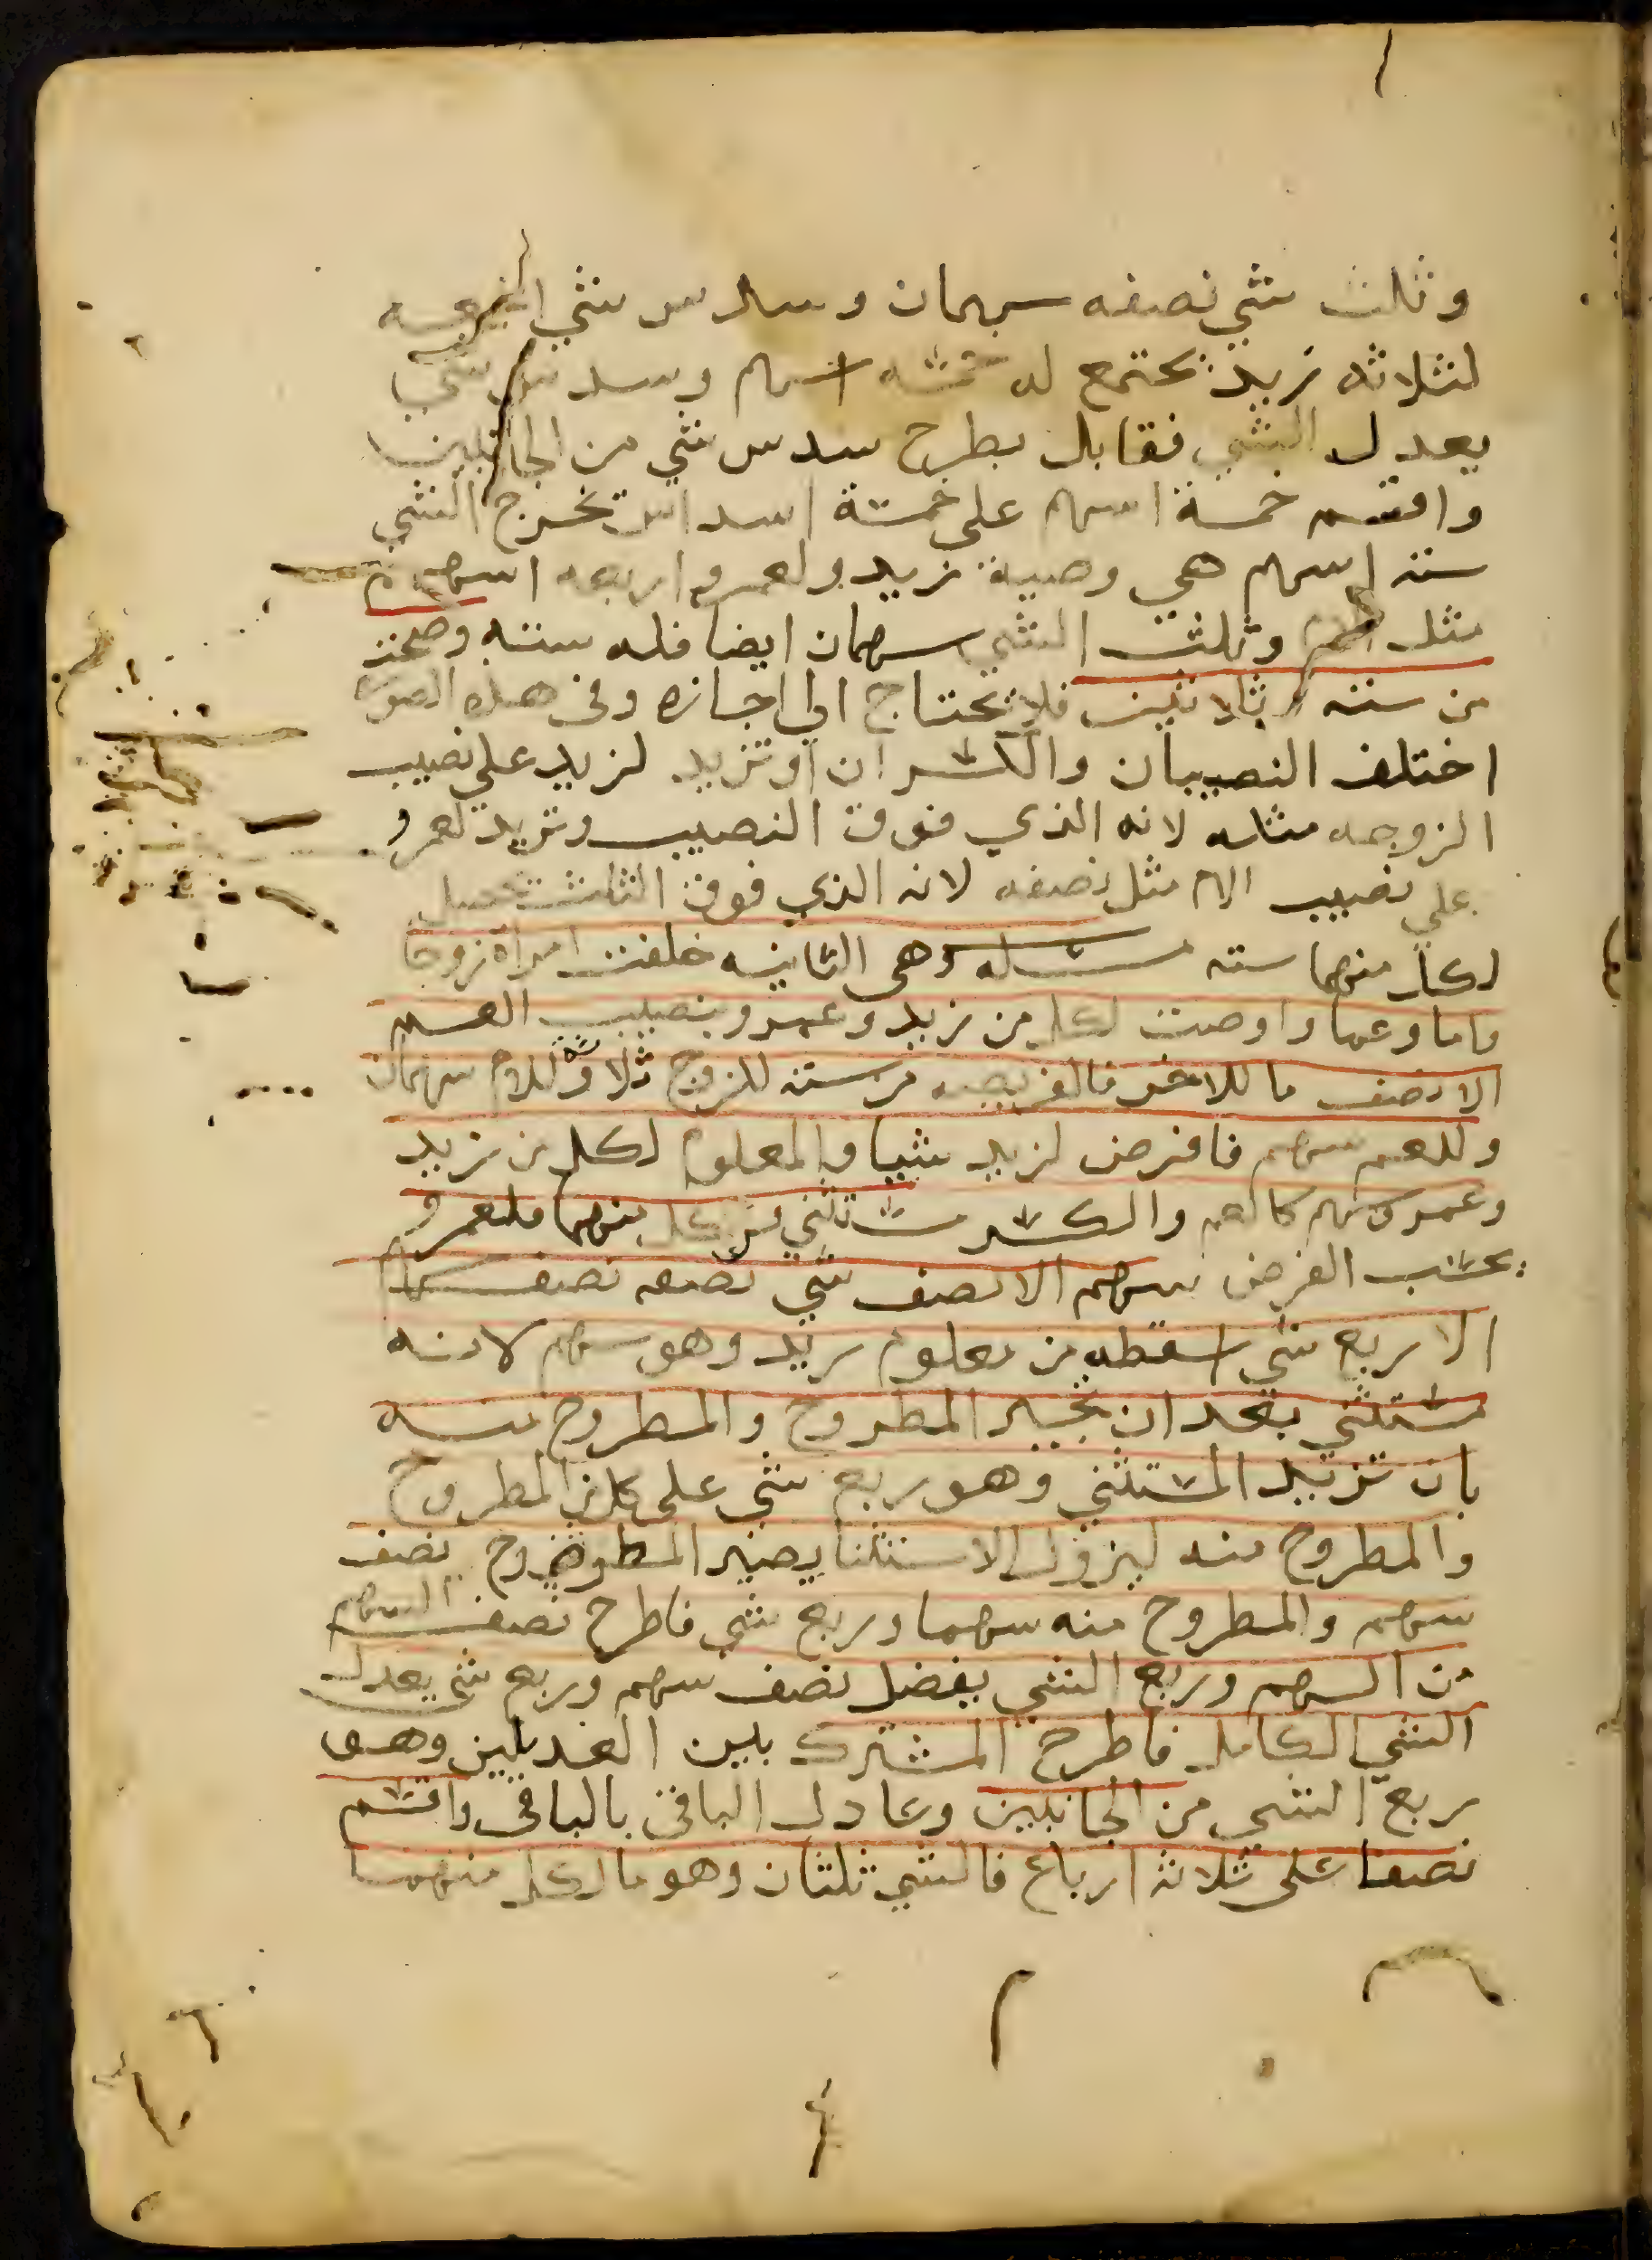 وثلث شي نصفه سهمان وسدس شي
لثلاثه زيد يجتمع له خمسه اسهم وسدس شي
يعدل الشي فقابل بطرح سدس شي من الجانبين
واقسم خمسة اسهم على خمسة اسداس تخرج الشي
ستة اسهم هي وصية زيد ولعمرو اربعه اسهم
مثل الام وثلث الشي سهمان ايضا فله سته وصحت
من ستة وثلاثين فلا تحتاج الى اجازه وفى هذه الصوره
اختلف النصيبان والكسران او تزيد لزيد على نصيب
الزوجه مثله لانه الذي فوق النصيب وتزيد لعمرو
على نصيب الام مثل نصفه لانه الذي فوق الثلث تحصل
لكل منهما سته مسله وهى الثانيه خلفت امراة زوجا
واما وعما واوصت لكل من زيد وعمرو بنصيب العم
الا نصف ما للاخر فالفريضه من سته للزوج ثلاثه وللام سهمان
وللعم سهم فافرض لزيد شيا والمعلوم لكل من زيد
وعمرو سهم كالعم والكسر مستثنى من كل منهما فلعمرو
بحسب الفرض سهم الا نصف شي نصفه نصف سهم
الا ربع شي اسقطه من معلوم زيد وهو سهم لانه
مستثنى بعد ان تجبر المطروح والمطروح منه
بان تزيد المستثنى وهو ربع شي على كل من المطروح
والمطروح منه ليزول الاستثنا يصير المطروح نصف
سهم والمطروح منه سهما وربع شي فاطرح نصف السهم
من السهم وربع الشي يفضل نصف سهم وربع شي يعدل
الشي الكامل فاطرح المشترك بين العديلين وهو
ربع الشي من الجانبين وعادل الباقى بالباقى واقسم
نصفا على ثلاثة ارباع فالشي ثلثان وهو ما لكل منهما